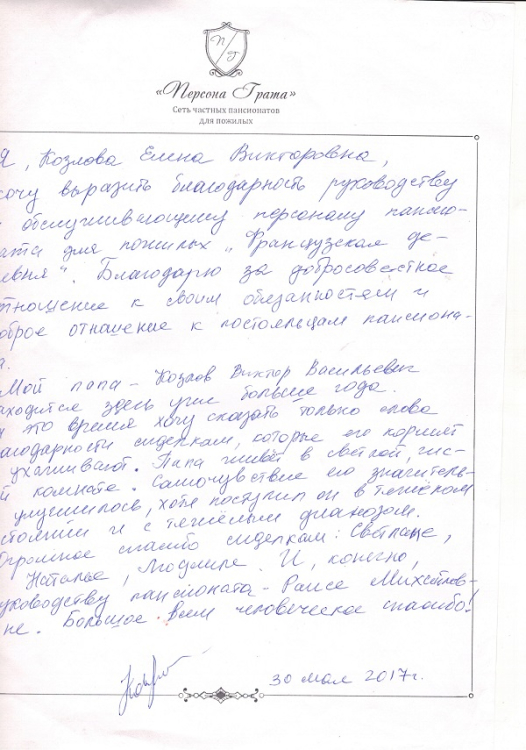 «Персона Грата»
Сеть частных пансионатов
для пожилых
Я, Козлова Елена Викторовна,
хочу выразить благодарность руководству
обслуживающему персоналу пансио-
ата для пожилых „Французская де-
евня“. Благодарю за добросовестное
тношение к своим обязанностям и
оброе отношение к постояльцам пансиона-
а.
Мой папа – Козлов Виктор Васильевич
аходится здесь уже больше года.
это время хочу сказать только слова
агодарности сиделкам, которые его кормят
ухаживают. Папа живёт в светлой, чис-
й комнате. Самочувствие его значитель-
улучшилось, хотя поступил он в тяжёлом
стоянии и с тяжёлым диагнозом.
Огромное спасибо сиделкам: Светлане,
Наталье, Людмиле. И, конечно,
уководству пансионата – Раисе Михайлов-
не. Большое всем человеческое спасибо!
30 мая 2017г.